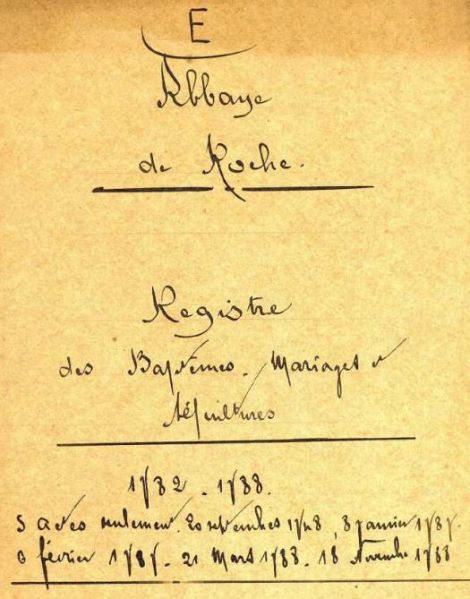 E
Abbaye
de Roche.
Registre
des Baptêmes. Mariages et
Sépultures
1782 - 1788.
5 actes seulement. 20 septembre 8 janvier 1787.
février 1787. 21 Mars 1788. 18 Novembre 1788